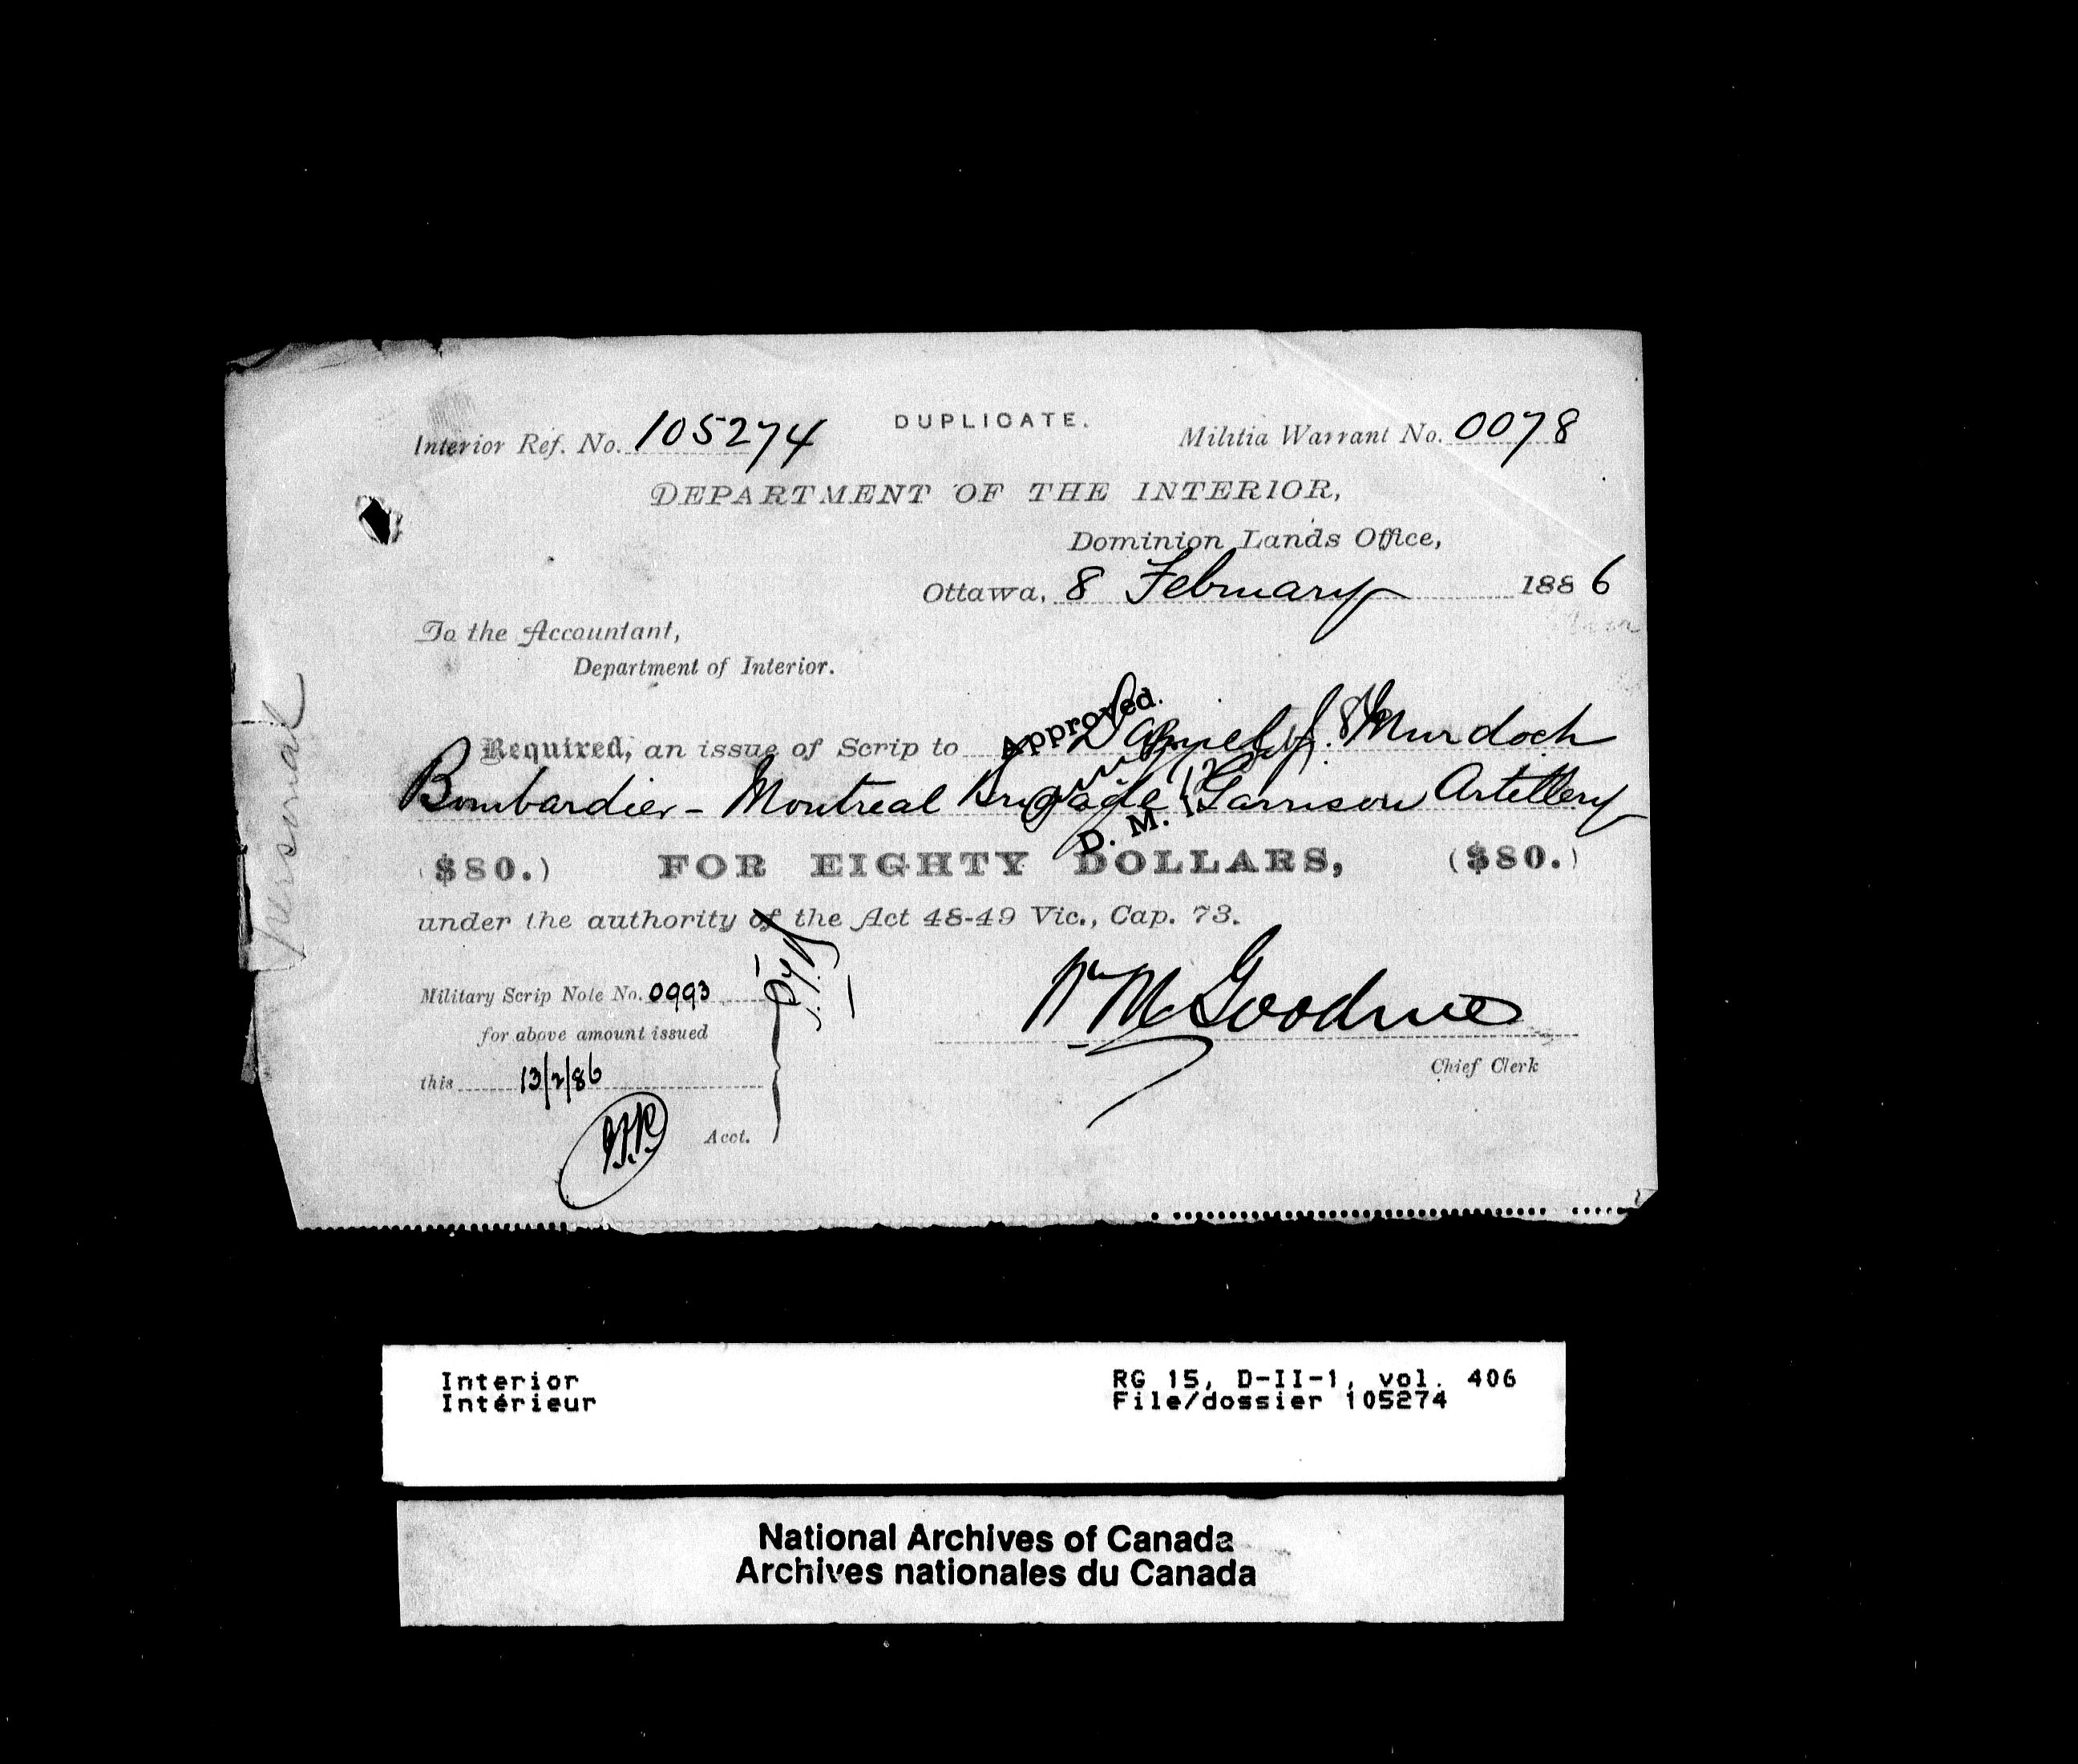 DUPLICATE.
Interior Ref. No. 105274 Militia Warrant No. 0078
DEPARTMENT OF THE INTERIOR,
Dominion Lands Office,
Ottawa, 8 February 1886
To the Accountant,
Department of Interior.
Approved.
Required, an issue of Scrip to Daniel J. Murdoch
Bombardier - Montreal Brigade Garrison Artillery
D. M. I.
($80.) FOR EIGHTY DOLLARS, ($80.)
under the authority of the Act 48-49 Vic., Cap. 73.
Military Scrip Note No. 0993
for above amount issued
this 13/2/86
Acct.
Wm M Goodrie
Chief Clerk
Personal
Interior
Intérieur
RG 15, D-II-1, vol. 406
File/dossier 105274
National Archives of Canada
Archives nationales du Canada